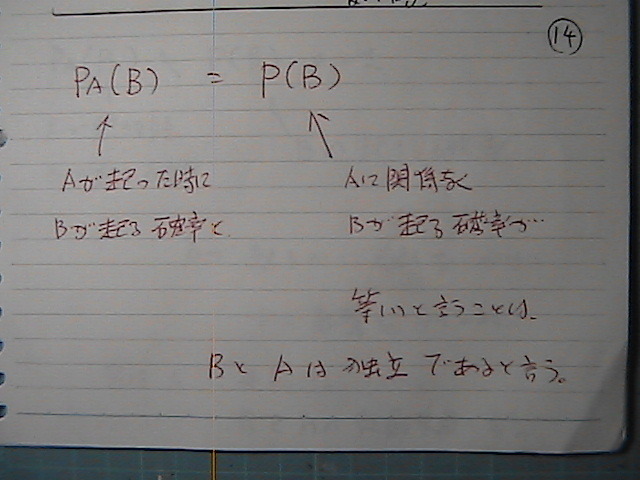 ⑭
PA(B) = P(B)
Aが起った時に Aに関係なく
Bが起る確率と Bが起る確率が…
等いと言うことは、
BとAは独立であると言う。